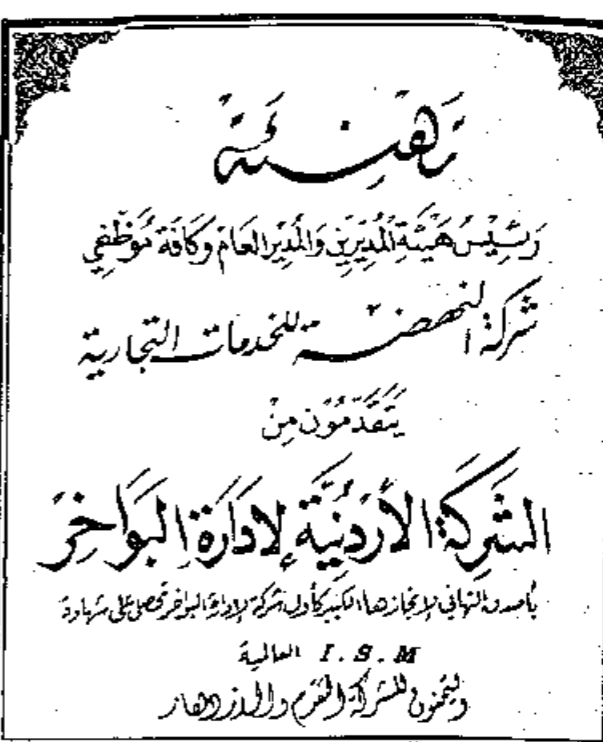 تهنئة
رئيس هيئة المديرين والمدير العام وكافة موظفي
شركة النهضة للخدمات التجارية
يتقدمون من
الشركة الأردنية لإدارة البواخر
بأصدق التهاني لإنجازها الكبير كأول شركة لإدارة البواخر تحصل على شهادة
I.S.M العالمية
ويتمنون للشركة التقدم والازدهار